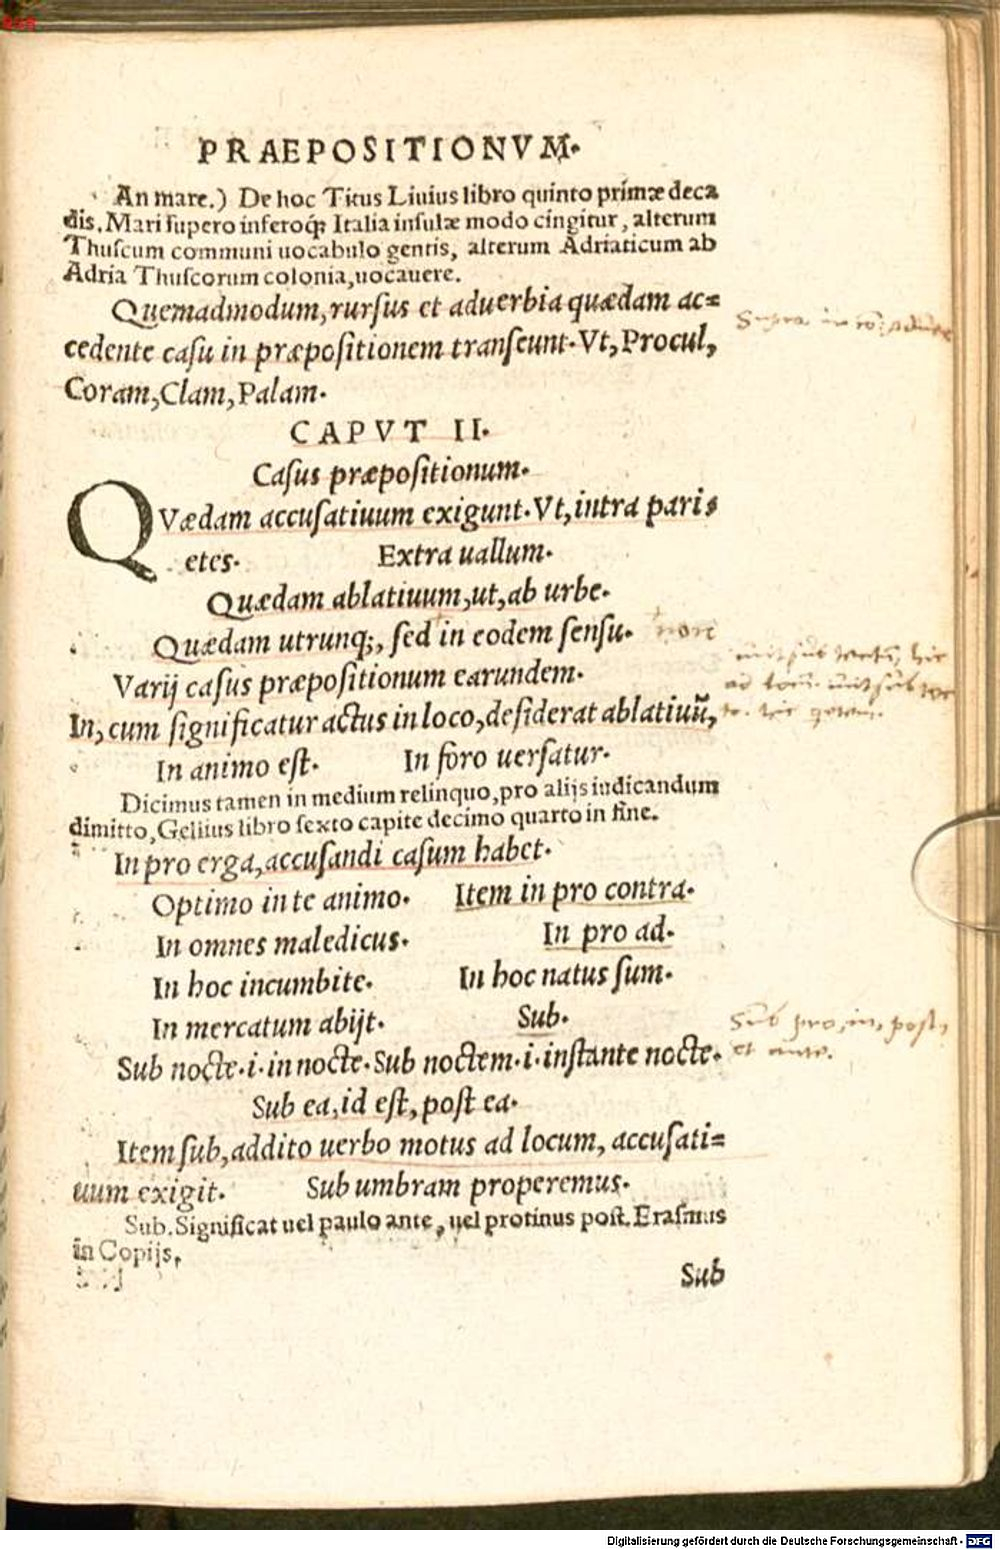 PRAEPOSITIONVM.
An mare.) De hoc Titus Liuius libro quinto primæ deca
dis. Mari supero inferoq; Italia insulæ modo cingitur, alterum
Thuscum communi uocabulo gentis, alterum Adriaticum ab
Adria Thuscorum colonia, uocauere.
Quemadmodum, rursus et aduerbia quædam ac=
cedente casu in præpositionem transeunt. Vt, Procul,
Coram, Clam, Palam.
Supra in
CAPVT II.
Casus præpositionum.
QVædam accusatiuum exigunt. Vt, intra pari=
etes. Extra uallum.
Quædam ablatiuum, ut, ab urbe.
Quædam utrunq;, sed in eodem sensu. non
Varij casus præpositionum earundem.
In, cum significatur actus in loco, desiderat ablatiuũ,
In animo est. In foro uersatur.
Dicimus tamen in medium relinquo, pro alijs iudicandum
dimitto, Gellius libro sexto capite decimo quarto in fine.
In pro erga, accusandi casum habet.
Optimo in te animo. Item in pro contra.
In omnes maledicus. In pro ad.
In hoc incumbite. In hoc natus sum.
In mercatum abijt. Sub.
Sub nocte.i.in nocte. Sub noctem.i.instante nocte.
Sub pro, in, post,
et ante.
Sub ea, id est, post ea.
Item sub, addito uerbo motus ad locum, accusati=
uum exigit. Sub umbram properemus.
Sub. Significat uel paulo ante, uel protinus post. Erasmus
in Copijs.
Sub
Digitalisierung gefördert durch die Deutsche Forschungsgemeinschaft - DFG